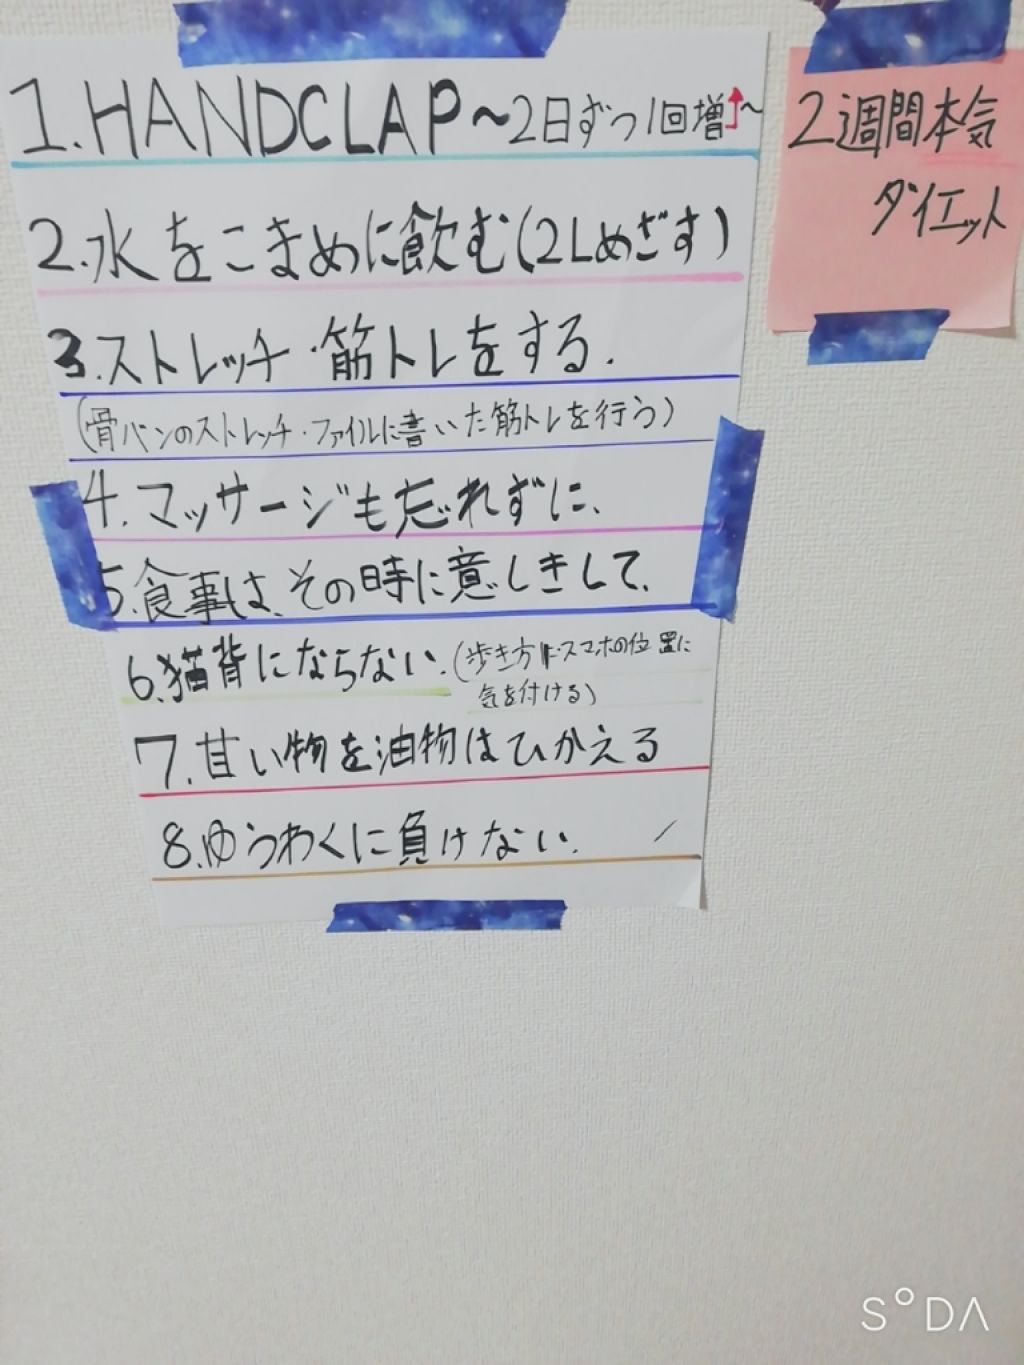 1.HANDCLAP～2日ずつ1回増↑～
2.水をこまめに飲む(2Lめざす)
3.ストレッチ・筋トレをする.
(骨バンのストレッチ・ファイルに書いた筋トレを行う)
4.マッサージも忘れずに、
5.食事は、その時に意しきして、
6.猫背にならない.(歩き方や・スマホの位置に
気を付ける)
7.甘い物を油物はひかえる
8.ゆうわくに負けない.
2週間本気
ダイエット
SODA